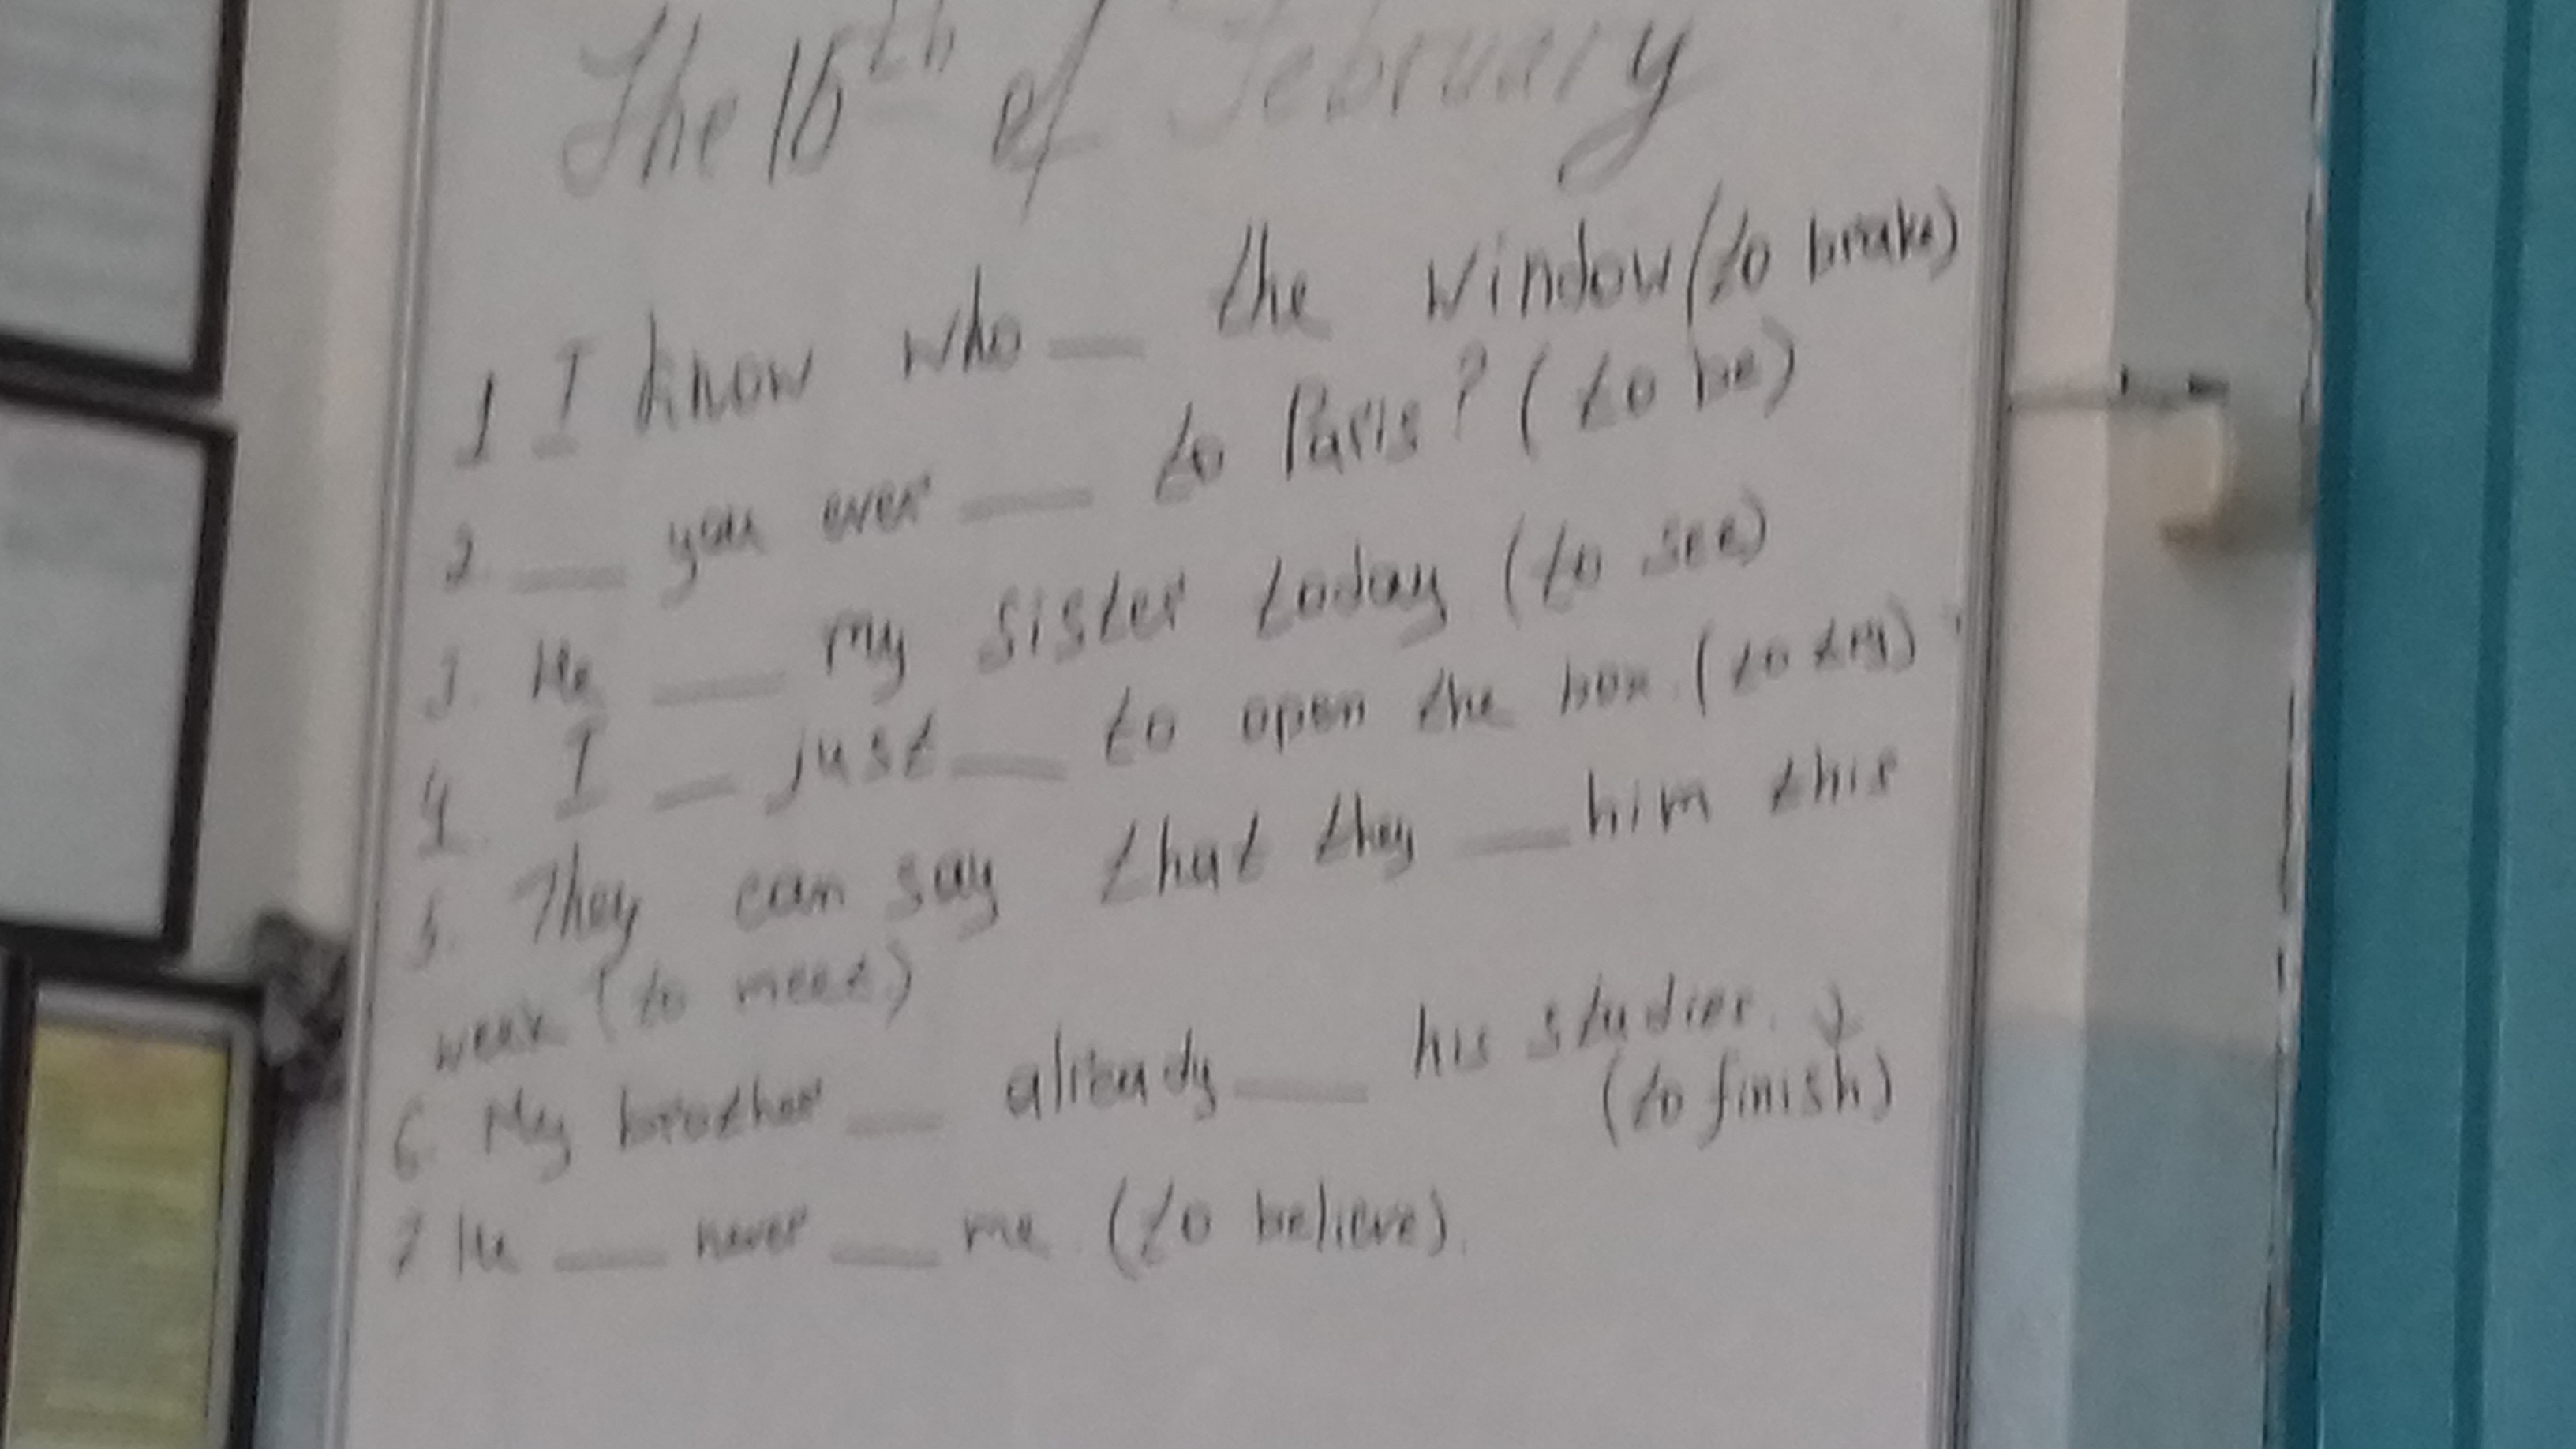 The 16th of February
1 I know who __ the window (to brake)
2. __ you ever __ to Paris? (to be)
3. He __ my sister today (to see)
4. I __ just __ to open the box. (to try)
5. They can say that they __ him this
week (to meet)
6. My brother __ already __ his studies.
(to finish)
7 He __ never __ me (to believe).